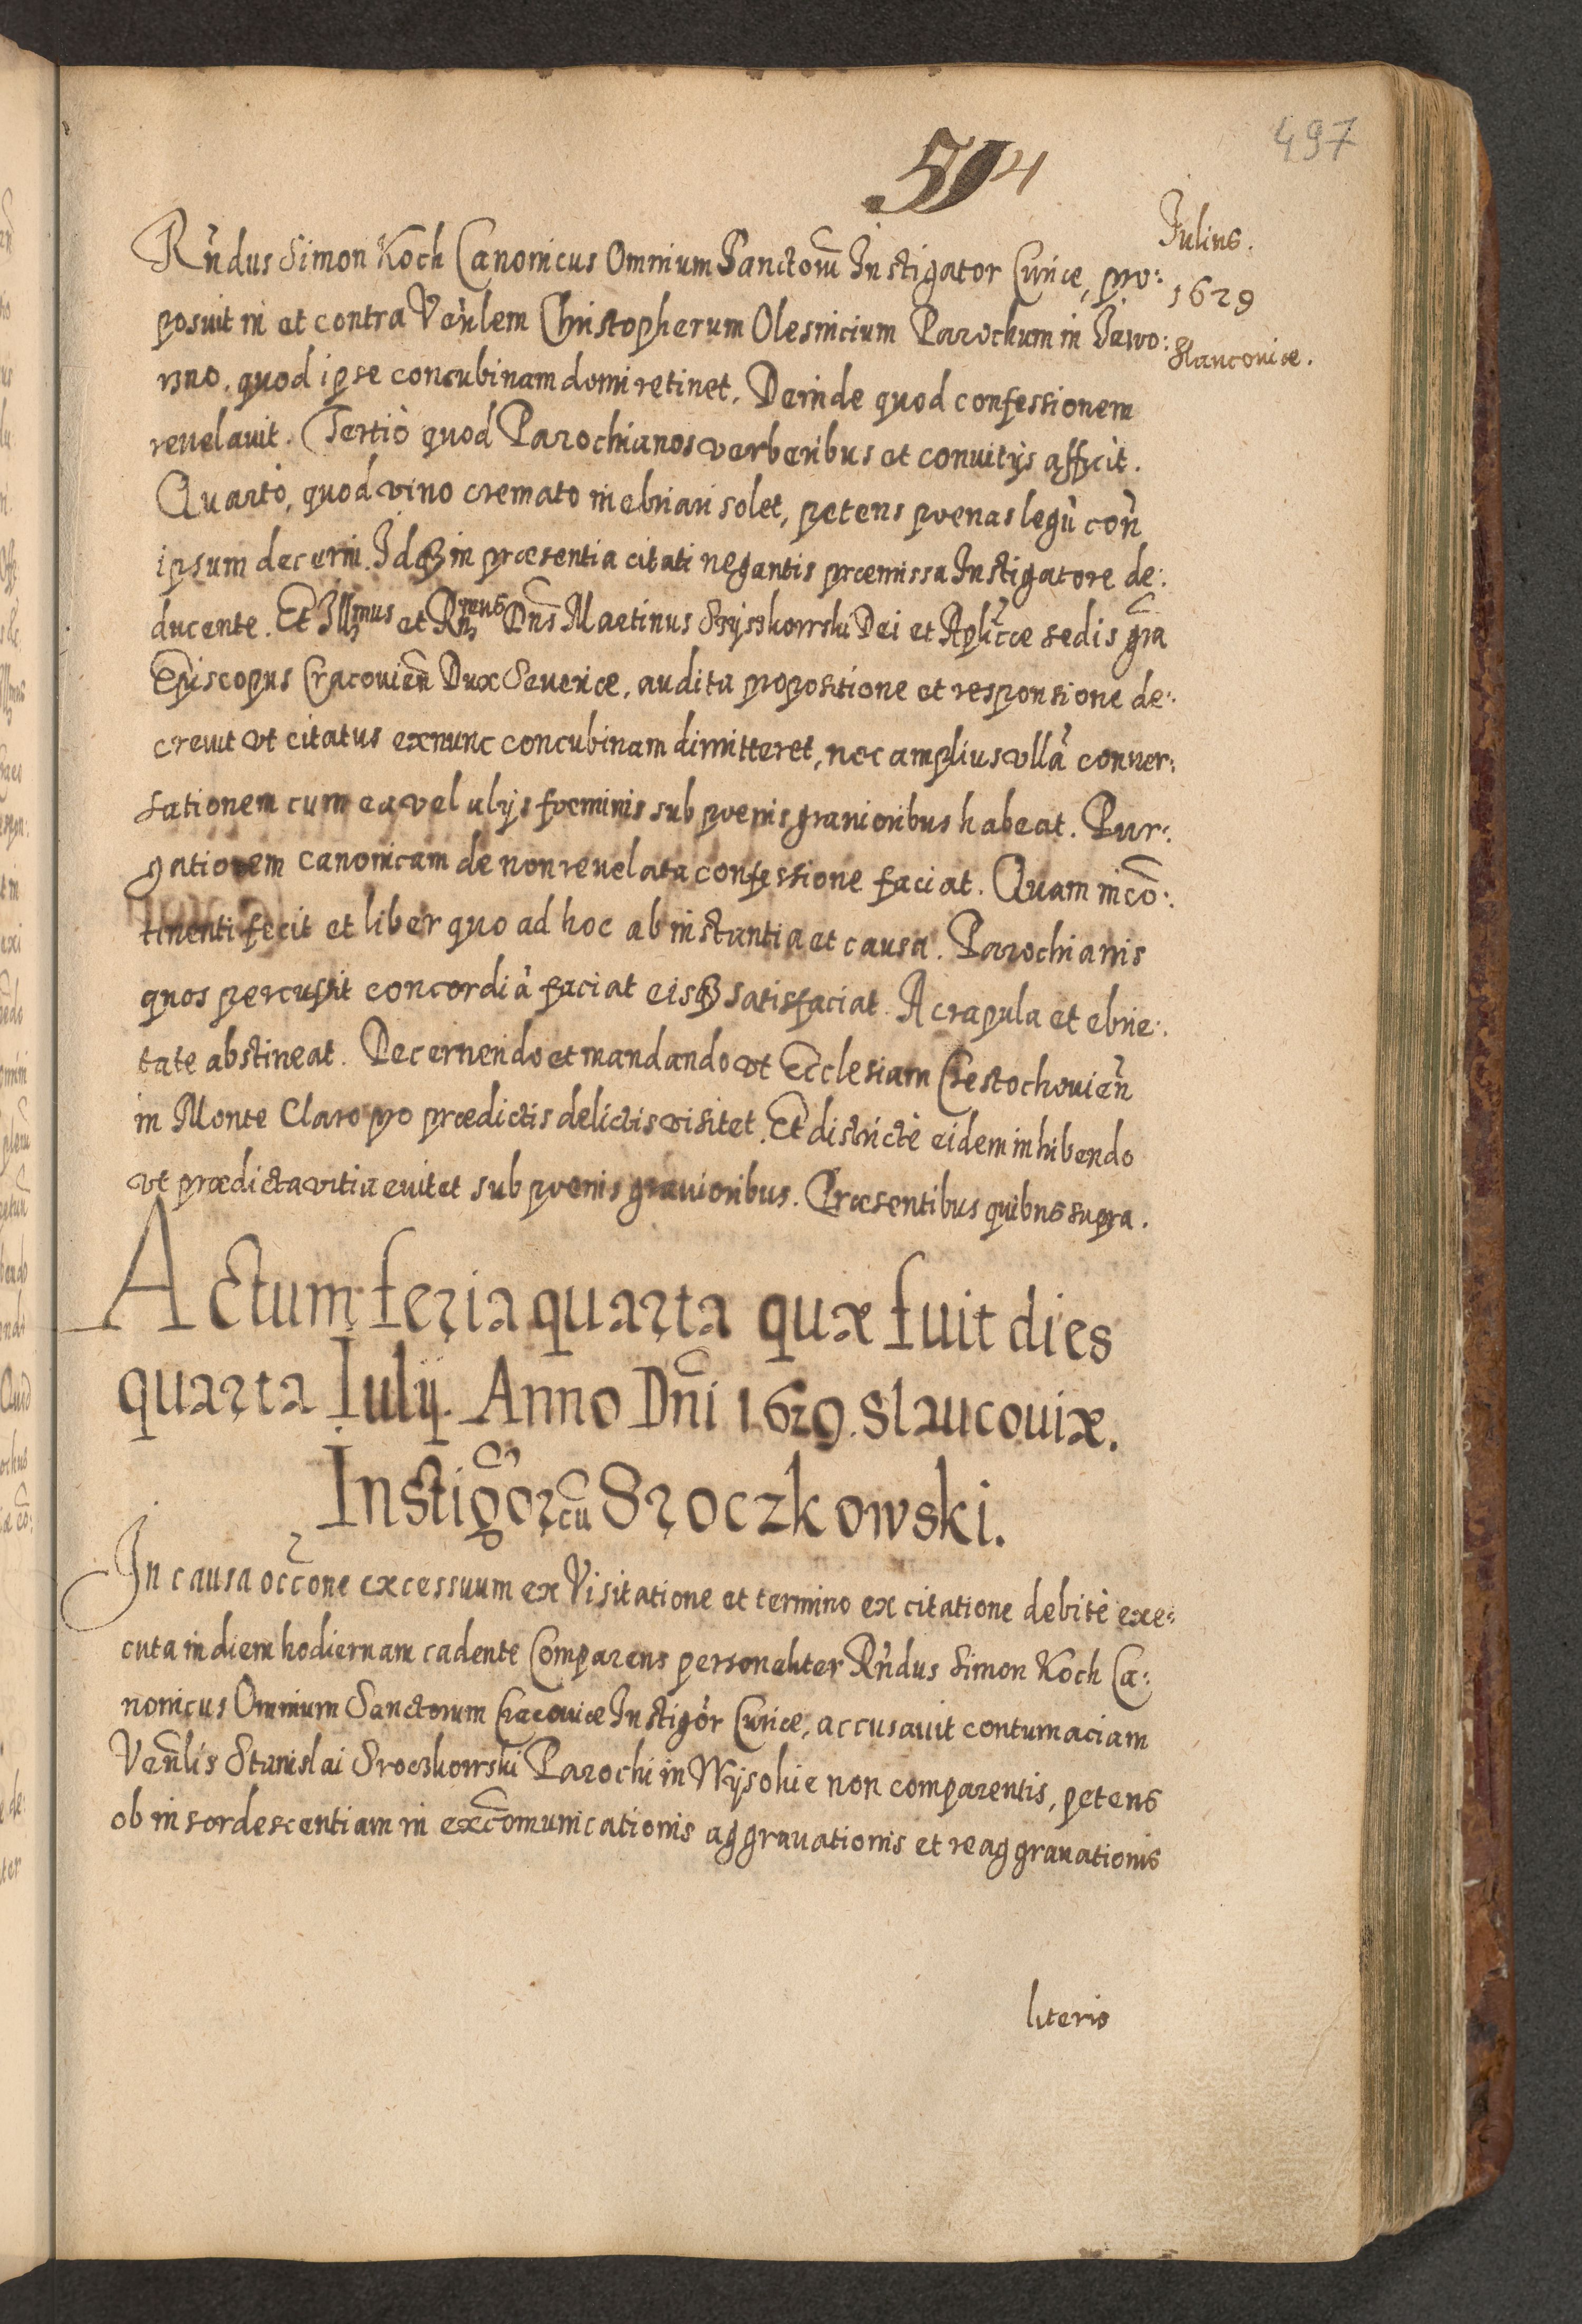 497
514
Julius.
1629
Slaucoviæ.
Rńdus Simon Koch Canonicus Omnium Sanctorū Instigator Curiæ, pro:
posuit in et contra Veńlem Christopherum Olesnicium Parochum in Jawo:
rzno. quod ipse concubinam domi retinet. Deinde quod confessionem
reuelauit. Tertiò quod Parochianos verberibus et conuitijs afficit.
Quartò, quod vino cremato inebriari solet, petens poenas legū coñ
ipsum decerni. Idqꝫ in præsentia citati negantis præmissa Instigatore de:
ducente. Et Illmus et Rñmus Dñs Martinus Szyszkowski Dei et Aplicæ sedis gra
Episcopus Cracovień Dux Seueriæ, audita propositione et responsione de:
creuit vt citatus exnunc concubinam dimitteret, nec amplius vllā conuer:
sationem cum ea vel alijs foeminis sub poenis grauioribus habeat. Pur:
gationem canonicam de non reuelata confessione faciat. Quam incō:
tinenti fecit et liber quo ad hoc ab instantia et causa. Parochianis
quos percussit concordiā faciat eisqꝫ satisfaciat. A crapula et ebrie:
tate abstineat. Decernendo et mandando vt Ecclesiam Czestochovień
in Monte Claro pro prædictis delictis visitet. Et districtè eidem inhibendo
vt prædicta vitia euitet sub poenis grauioribus. Præsentibus quibus supra.
Actum feria quarta quæ fuit dies
quarta Iulij. Anno Dñi 1629. Slaucouiæ.
Instigor cū Sroczkowski.
In causa occōne excessuum ex Visitatione et termino ex citatione debitè exe:
cuta in diem hodiernam cadente Comparens personaliter Rńdus Simon Koch Ca:
nonicus Omnium Sanctorum Cracouiæ Instigòr Curiæ, accusauit contumaciam
Veńlis Stanislai Sroczkowski Parochi in Wysokie non comparentis, petens
ob insordescentiam in excōmunicationis aggrauationis et reaggrauationis
literis